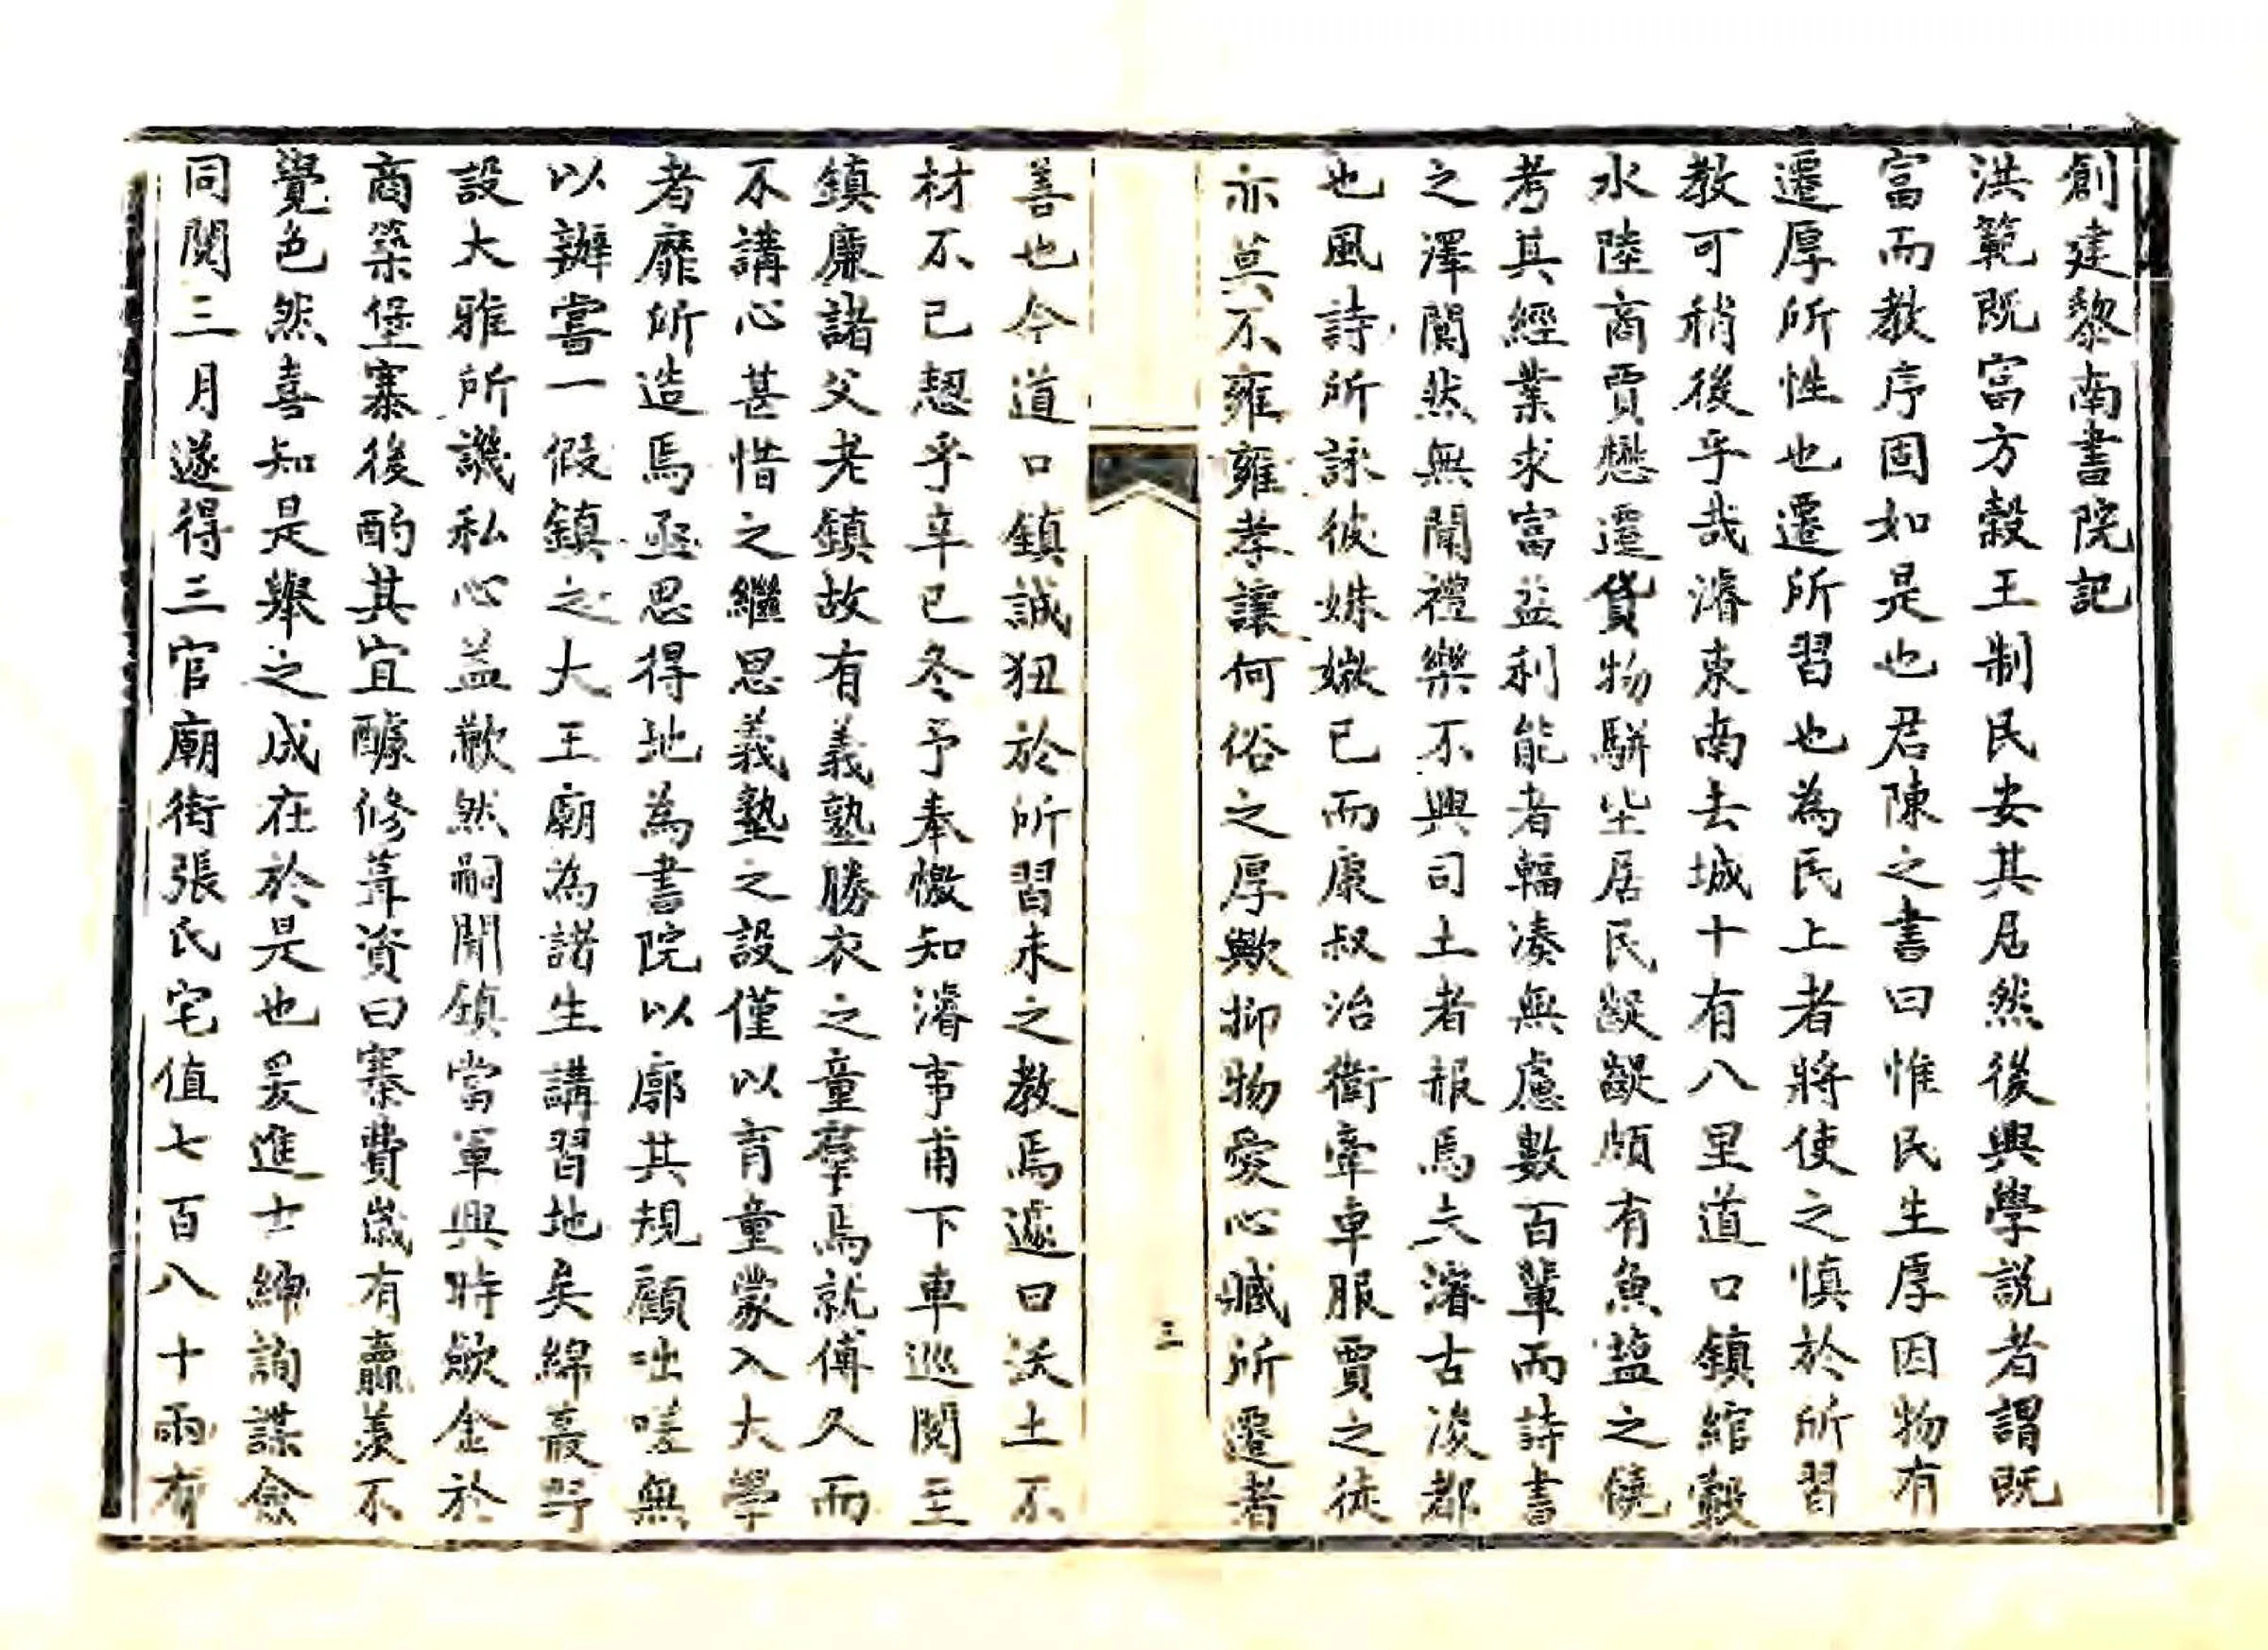 創建黎南書院記
洪範既富方穀王制民安其居然後興學說者謂既
富而教序固如是也君陳之書曰惟民生厚因物有
遷厚所性也遷所習也為民上者將使之慎於所習
教可稍後乎哉濬東南去城十有八里道口鎮綰轂
水陸商賈懋遷貨物駢坒居民齗齗頗有魚鹽之饒
考其經業求富益利能者輻湊無慮數百輩而詩書
之澤闃然無聞禮樂不興司土者赧焉夫濬古浚都
也風詩所詠彼姝媺已而康叔治衛牽車服賈之徒
亦莫不雍雍孝讓何俗之厚歟抑物愛心臧所遷者
善也今道口鎮誠狃於所習未之教焉遽曰沃土不
材不已愬乎辛巳冬予奉檄知濬事甫下車巡閱至
鎮廉諸父老鎮故有義塾勝衣之童羣焉就傅久而
不講心甚惜之繼思義塾之設僅以育童蒙入大學
者靡所造焉亟思得地為書院以廓其規顧咄嗟無
以辦嘗一假鎮之大王廟為諸生講習地矣綿蕞野
設大雅所譏私心益歉然嗣聞鎮當軍興時斂金於
商築堡寨後酌其宜醵修葺資曰寨費歲有羸羨不
覺色然喜知是舉之成在於是也爰進士紳詢謀僉
同閱三月遂得三官廟街張氏宅值七百八十兩有
三